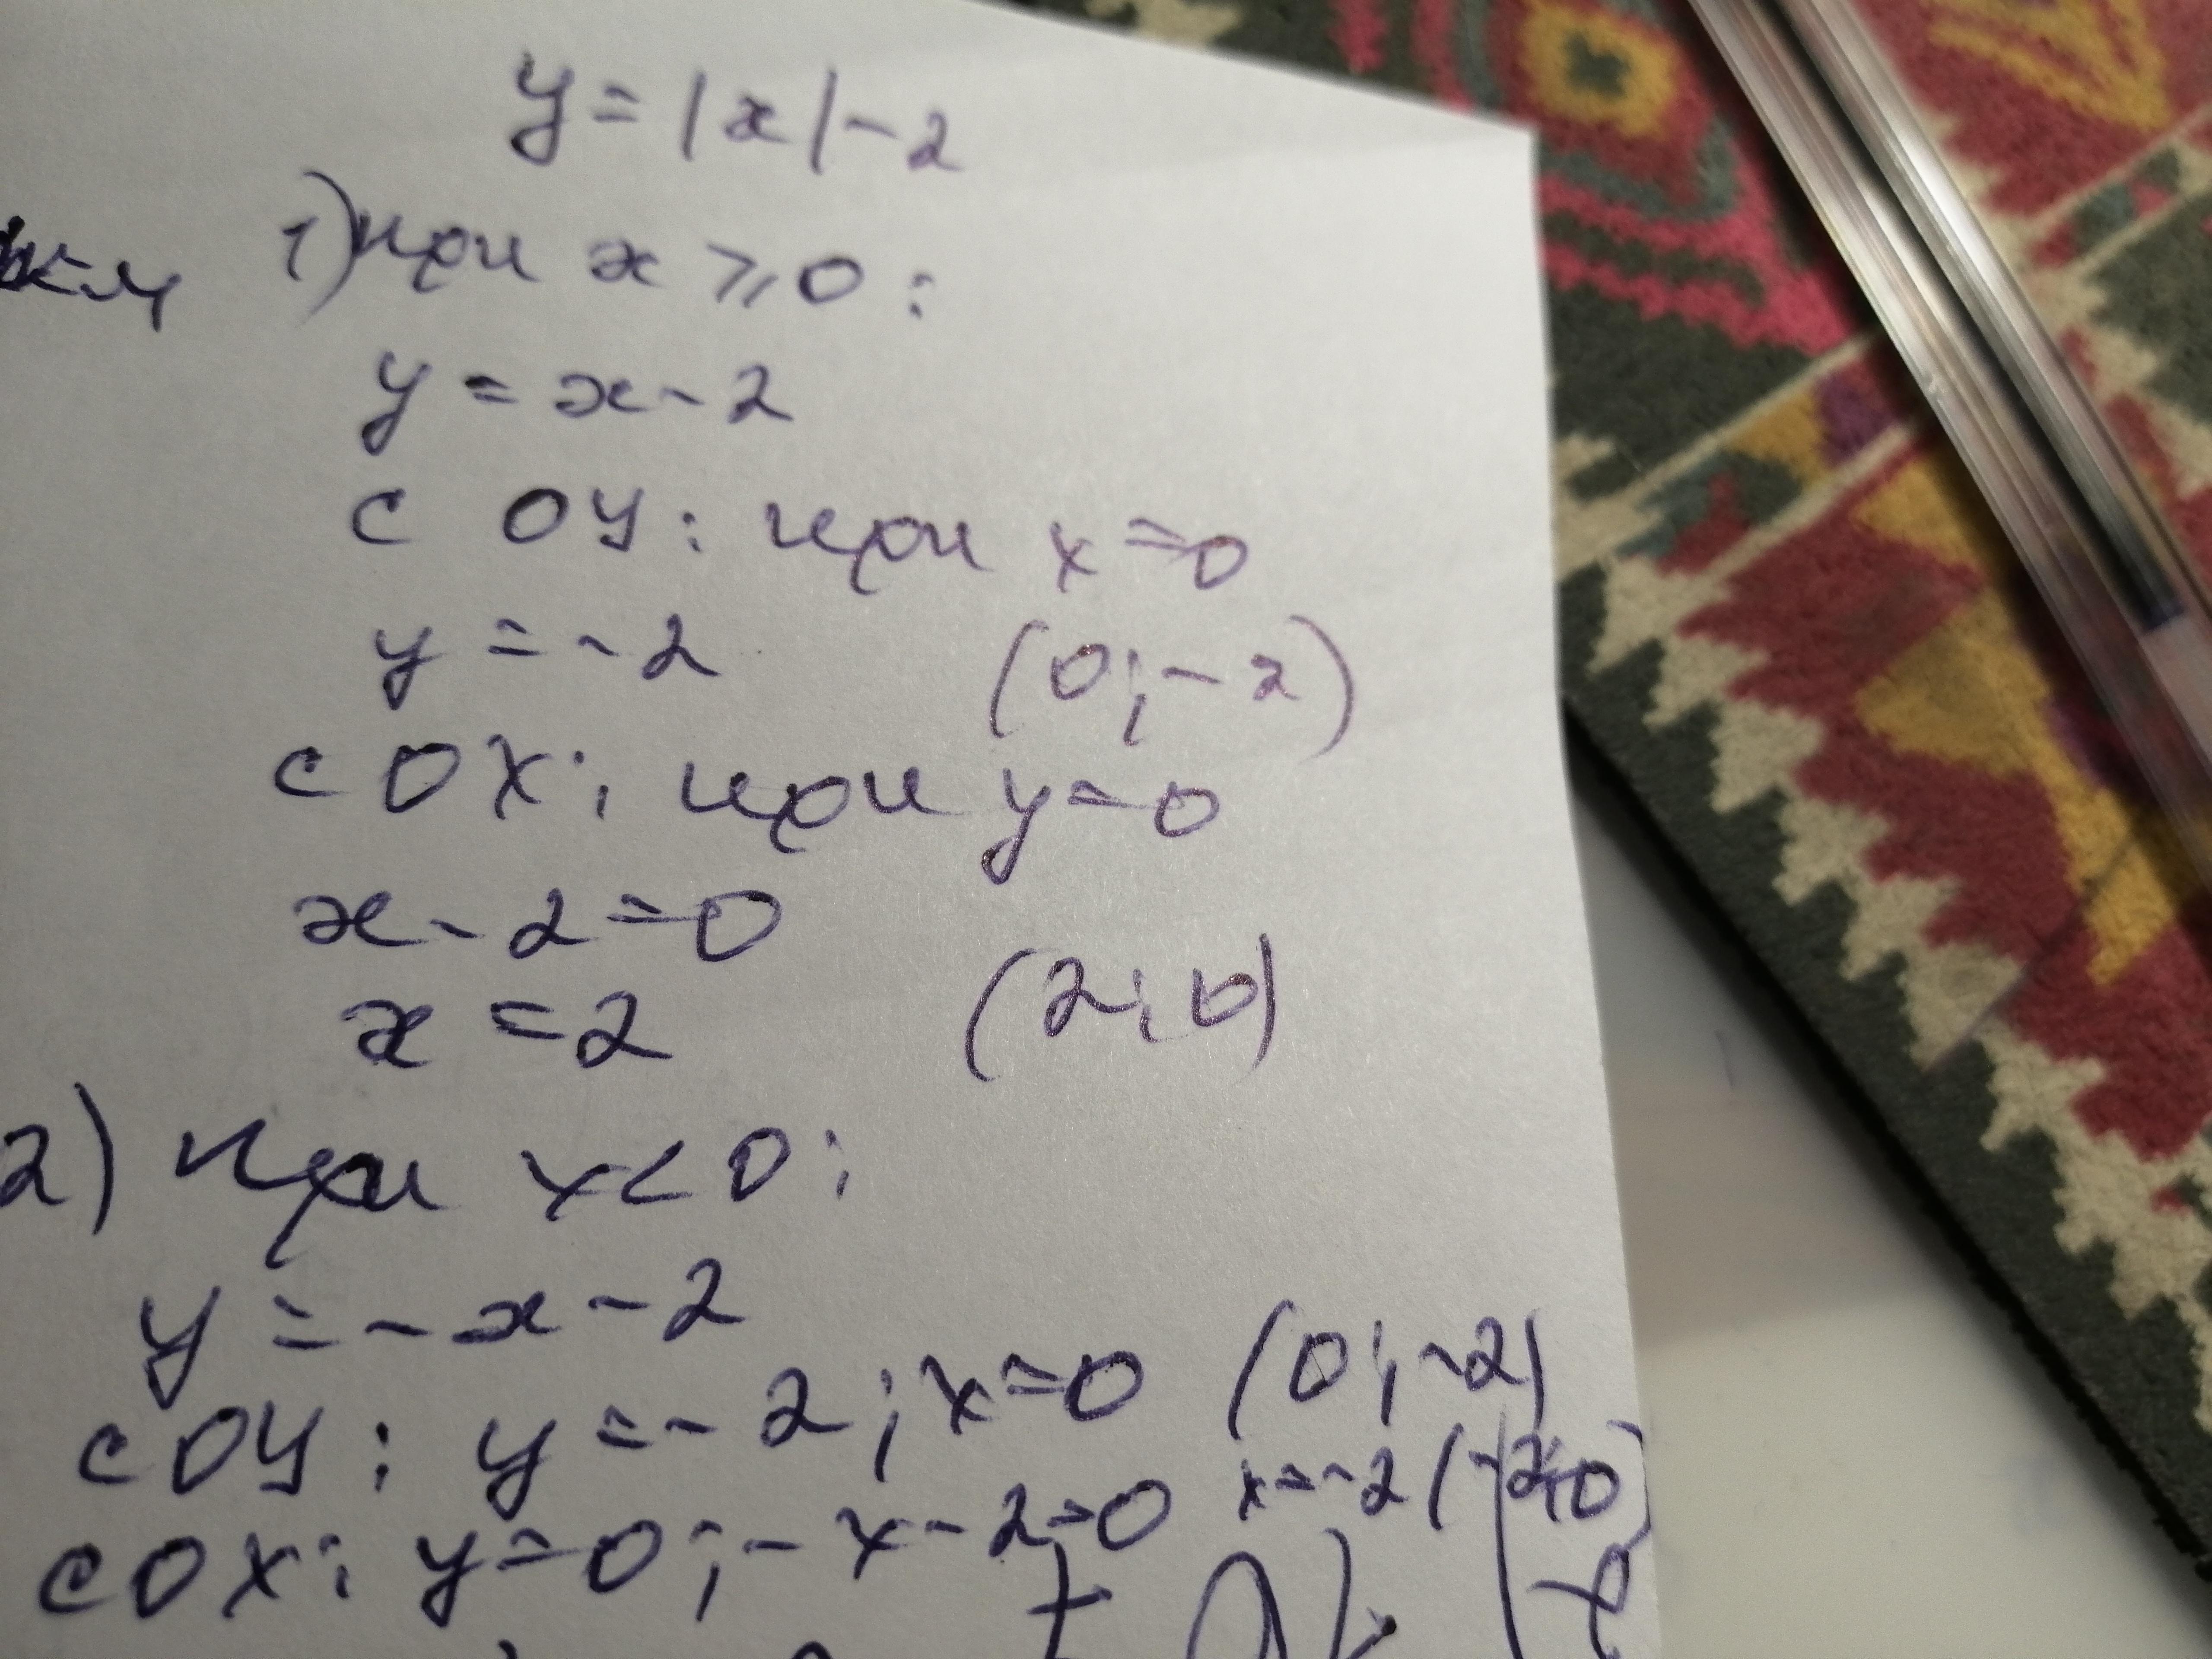 y = |x| - 2
1) при x ⩾ 0 :
y = x - 2
с OY : при x = 0
y = -2 (0; -2)
с OX : при y = 0
x - 2 = 0
x = 2 (2; 0)
2) при x < 0 :
y = -x - 2
с OY : y = -2 ; x = 0 (0; -2)
с OX : y = 0 ; -x - 2 = 0 x = -2 (-2; 0)